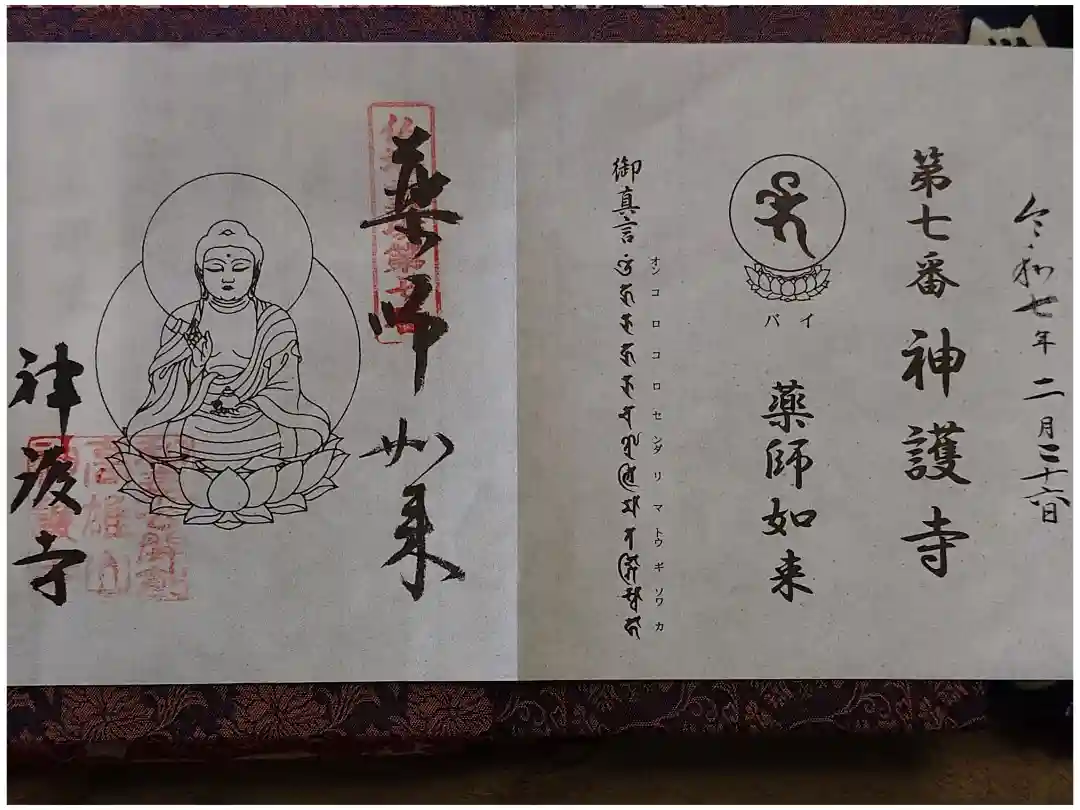 令和七年 二月二十六日
第七番 神護寺
バイ
薬師如来
オン コ ロ コ ロ セ ンダ リ マ トウ ギ ソワ カ
御真言
薬師如来
高雄山
神護寺